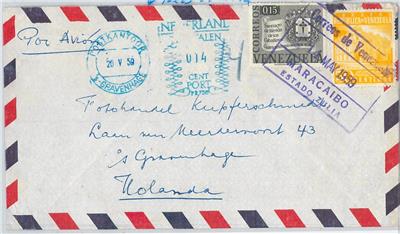 Par Avion
POSTKANTOOR
20 V 59
'S-GRAVENHAGE
NEDERLAND
014
CENT
PORT
CORREOS
0,15
VENEZUELA
Correos de Venezuela
MAY 1959
MARACAIBO
ESTADO ZULIA
Fotohandel Kupferschmidt
Laan van Meerdervoort 43
's Gravenhage
Holanda